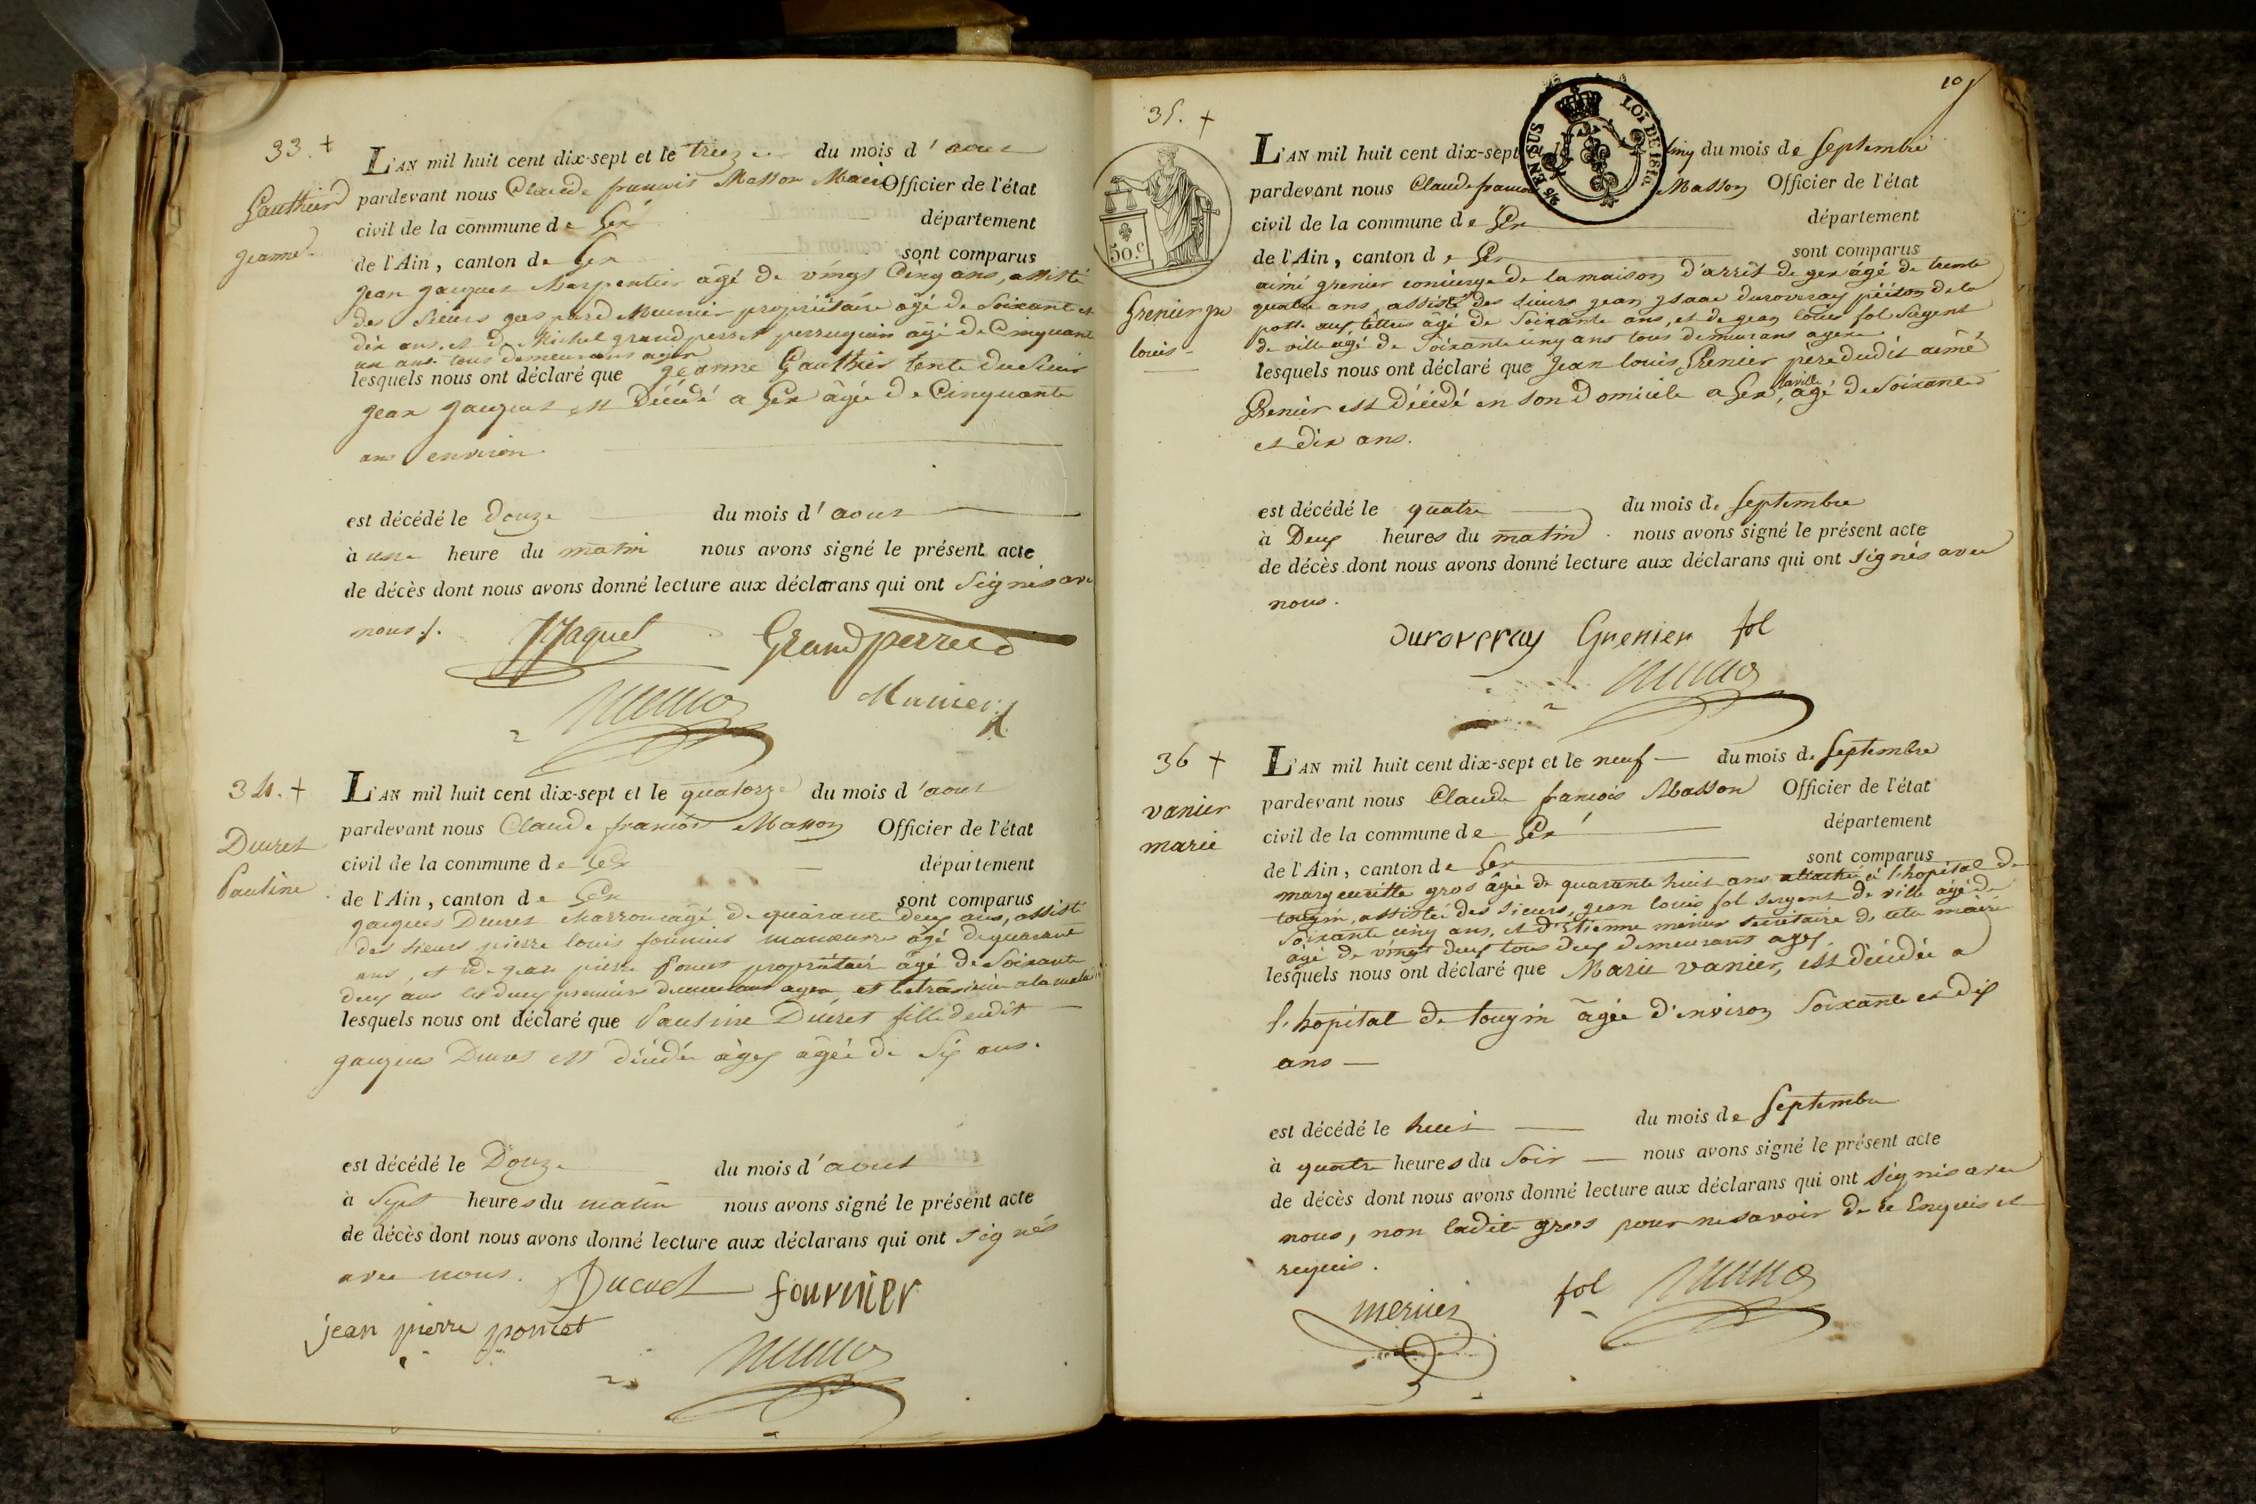 33. +
Gauthier
jeanne
L'AN mil huit cent dix-sept et le treize du mois d'aout
pardevant nous Claude francois Masson Maire Officier de l'état
civil de la commune de Gex
département
de l'Ain, canton de Gex sont comparus
jean jacques Charpentier âgé de vingt Cinq ans, assisté
des sieurs gaspard Meunier propriétaire agé de soixante et
dix ans et de Michel grandperret perruquier âgé de Cinquante
un ans tous demeurans agex
lesquels nous ont déclaré que jeanne Gauthier tente du Sieur
jean jacques est Décédé a Gex âgée de Cinquante
ans environ.
est décédé le douze du mois d'aout
à une heure du matin nous avons signé le présent acte
de décès dont nous avons donné lecture aux déclarans qui ont signés avec
nous.
JJaquet Grandperret
Munier
34. +
Ducret
Pauline
L'AN mil huit cent dix-sept et le quatorze du mois d'aout
pardevant nous Claude francois Masson Officier de l'état
civil de la commune de Gex
département
de l'Ain, canton de Gex sont comparus
jacques Ducret Marron âgé de quarante deux ans, assisté
des sieurs pierre louis fournier manoeuvre âgé de quarante
ans, et de jean pierre Poncet propriétaire âgé de Soixante
deux ans les deux premiers demeurans agex et
lesquels nous ont déclaré que Pauline Ducret fille dudit
jacques Ducret est décédée àgex âgée de Six ans.
est décédé le Douze du mois d'aout
à Sept heures du matin nous avons signé le présent acte
de décès dont nous avons donné lecture aux déclarans qui ont signés
avec nous. Ducret fournier
jean pierre poncet
35. +
105
LOI DE 1816.
EN SUS
50.c
Grenier jn
louis
L'AN mil huit cent dix-sept cinq du mois de Septembre
pardevant nous Claude francois Masson Officier de l'état
civil de la commune de Gex
département
de l'Ain, canton de Gex sont comparus
aimé grenier concierge de la maison d'arrêt de gex âgé de trente
quatre ans, assisté des sieurs jean ysaac duroveray piéton de la
poste aux lettres âgé de Soixante ans, et de jean louis fol Sergent
de ville âgé de Soixante cinq ans tous demeurans agex
lesquels nous ont déclaré que Jean louis Grenier père dudit aimé
Grenier est décédé en son Domicile a Gex, laville, âgé de Soixante
et dix ans.
est décédé le quatre du mois de Septembre
à Deux heures du matin nous avons signé le présent acte
de décès dont nous avons donné lecture aux déclarans qui ont signés avec
nous.
Duroveray Grenier fol
36 +
vanier
marie
L'AN mil huit cent dix-sept et le neuf du mois de Septembre
pardevant nous Claude francois Masson Officier de l'état
civil de la commune de Gex
département
de l'Ain, canton de Gex sont comparus
margueritte gros âgée de quarante huit ans attachée à l'hopital de
tougin, assistée des sieurs, jean louis fol sergent de ville âgé de
Soixante cinq ans, et d'Etienne mercier secrétaire de la mairie
âgé de vingt deux tous deux demeurant agex.
lesquels nous ont déclaré que Marie vanier, est décédée a
l'hopital de tougin âgée d'environ Soixante et dix
ans
est décédé le huit du mois de Septembre
à quatre heures du Soir nous avons signé le présent acte
de décès dont nous avons donné lecture aux déclarans qui ont signés avec
nous, non ladite gros pour ne savoir de ce Enquis et
requis.
mercier fol